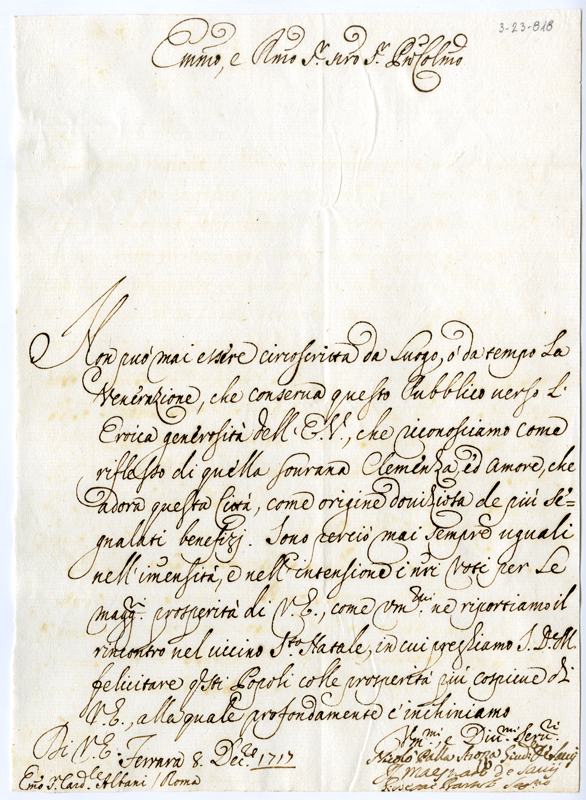 3-23-818
Emmo, e Rmo Sr. nro Sr. Pne Colmo
Non può mai essere circoscritta da Luogo, ò da tempo La
Venerazione, che conserva questo Publico verso L'
Eroica generosità dell'E.V., che riconosciamo come
riflesso di quella sourana Clemenza, ed amore, che
adora questa Città, come origine douiziosa de più se=
gnalati benefizj. Sono perciò mai sempre uguali
nell'imensità, e nell'intensione i nri Voti per Le
magg.i prosperità di V.E., come vm.mi ne riportiamo il
rincontro nel vicino S.to Natale, in cui preghiamo S.D.M.
felicitare q.sti Popoli colle prosperità più cospicue di
V.E., alla quale profondamente c'inchiniamo
Di V.E. Ferrara 8. Dec.re 1717
Vm.mi e Diu.mi Seru.ri
Emo S.r Card.le Albani / Roma
Nicolò Dalla Giud. de Sauij
e Maestrato de Sauij